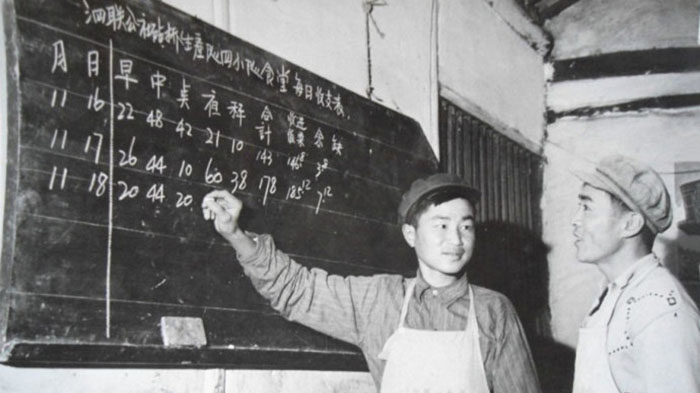 泗联公社生產队四小队食堂每日收支表
月 日 早 中 夜 合计 收进 余 缺
11 16 22 48 42 21 10 143 146⁸ 3⁸
11 17 26 44 10 60 38 178 185¹² 7¹²
11 18 20 44 20